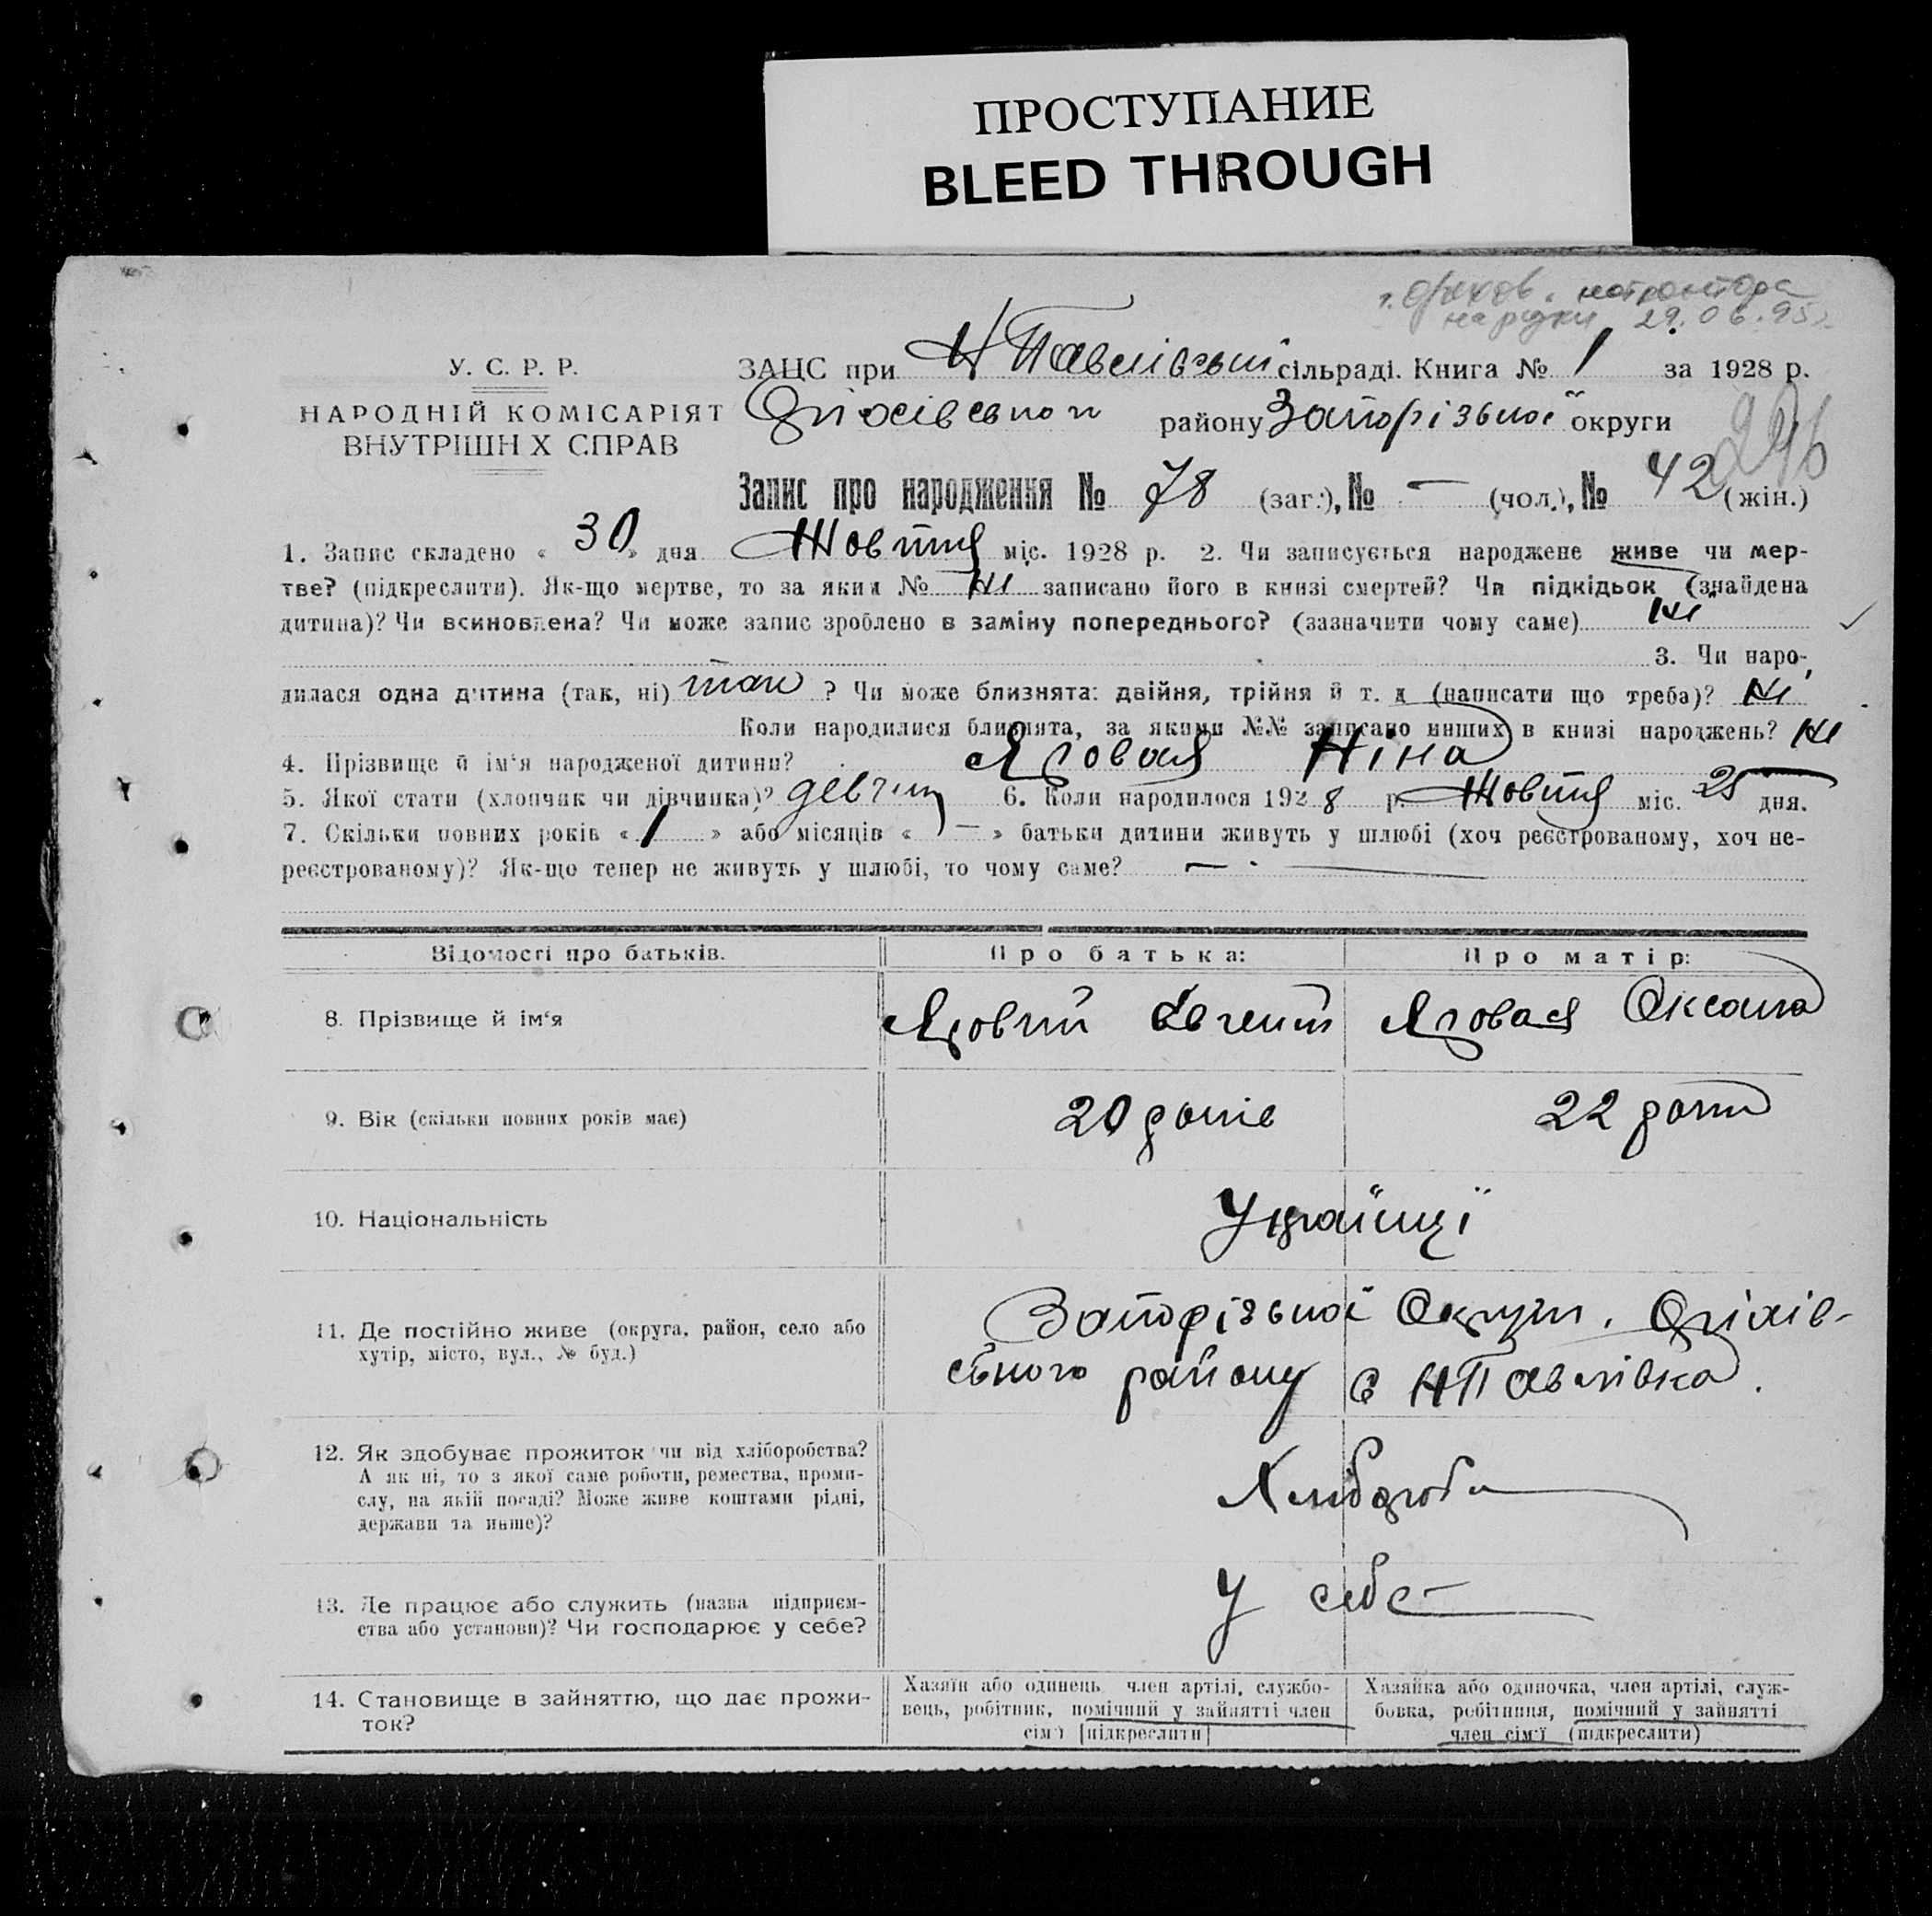 ПРОСТУПАНИЕ
BLEED THROUGH
29.06.95
У. С. Р. Р.
НАРОДНІЙ КОМІСАРІЯТ
ВНУТРІШН Х СПРАВ
ЗАЦС при НПавлівській сільраді. Книга № 1 за 1928 р.
Оріхівського району Запорізької округи
296
Запис про народження № 78 (заг.), № — (чол.), № 42 (жін.)
1. Запис складено « 30 » дня Жовтня міс. 1928 р. 2. Чи записується народжене живе чи мер-
тве? (підкреслити). Як-що мертве, то за яким № ні записано його в книзі смертей? Чи підкідьок (знайдена
дитина)? Чи всиновлена? Чи може запис зроблено в заміну попереднього? (зазначити чому саме) ні
3. Чи наро-
дилася одна дитина (так, ні) так ? Чи може близнята: двійня, трійня й т. д (написати що треба)? ні
Коли народилися близнята, за якими №№ записано инших в книзі народжень? ні
4. Прізвище й ім'я народженої дитини? Яровая Ніна
5. Якої стати (хлопчик чи дівчинка)? 6. Коли народилося 1928 р. Жовтня міс. 25 дня.
7. Скільки повних років « 1 » або місяців « — » батьки дитини живуть у шлюбі (хоч реєстрованому, хоч не-
реєстрованому)? Як-що тепер не живуть у шлюбі, то чому саме? —
Відомості про батьків. Про батька: Про матір:
8. Прізвище й ім'я Яровий Євгений Яровая Оксана
9. Вік (скільки повних років має) 20 років 22 роки
10. Національність Українці
11. Де постійно живе (округа, район, село або
хутір, місто, вул., № буд.)
Запорізької Округи. Оріхів-
ського району с НПавлівка.
12. Як здобуває прожиток чи від хліборобства?
А як ні, то з якої саме роботи, ремества, проми-
слу, на якій посаді? Може живе коштами рідні,
держави та инше)?
Хлібороби
13. Де працює або служить (назва підприєм-
ства або установи)? Чи господарює у себе?
У себе
14. Становище в зайняттю, що дає прожи-
ток?
Хазяїн або одинець член артілі, службо-
вець, робітник, помічний у зайнятті член
сім'ї [підкреслити]
Хазяйка або одиночка, член артілі, служ-
бовка, робітниця, помічний у зайнятті
член сім'ї (підкреслити)